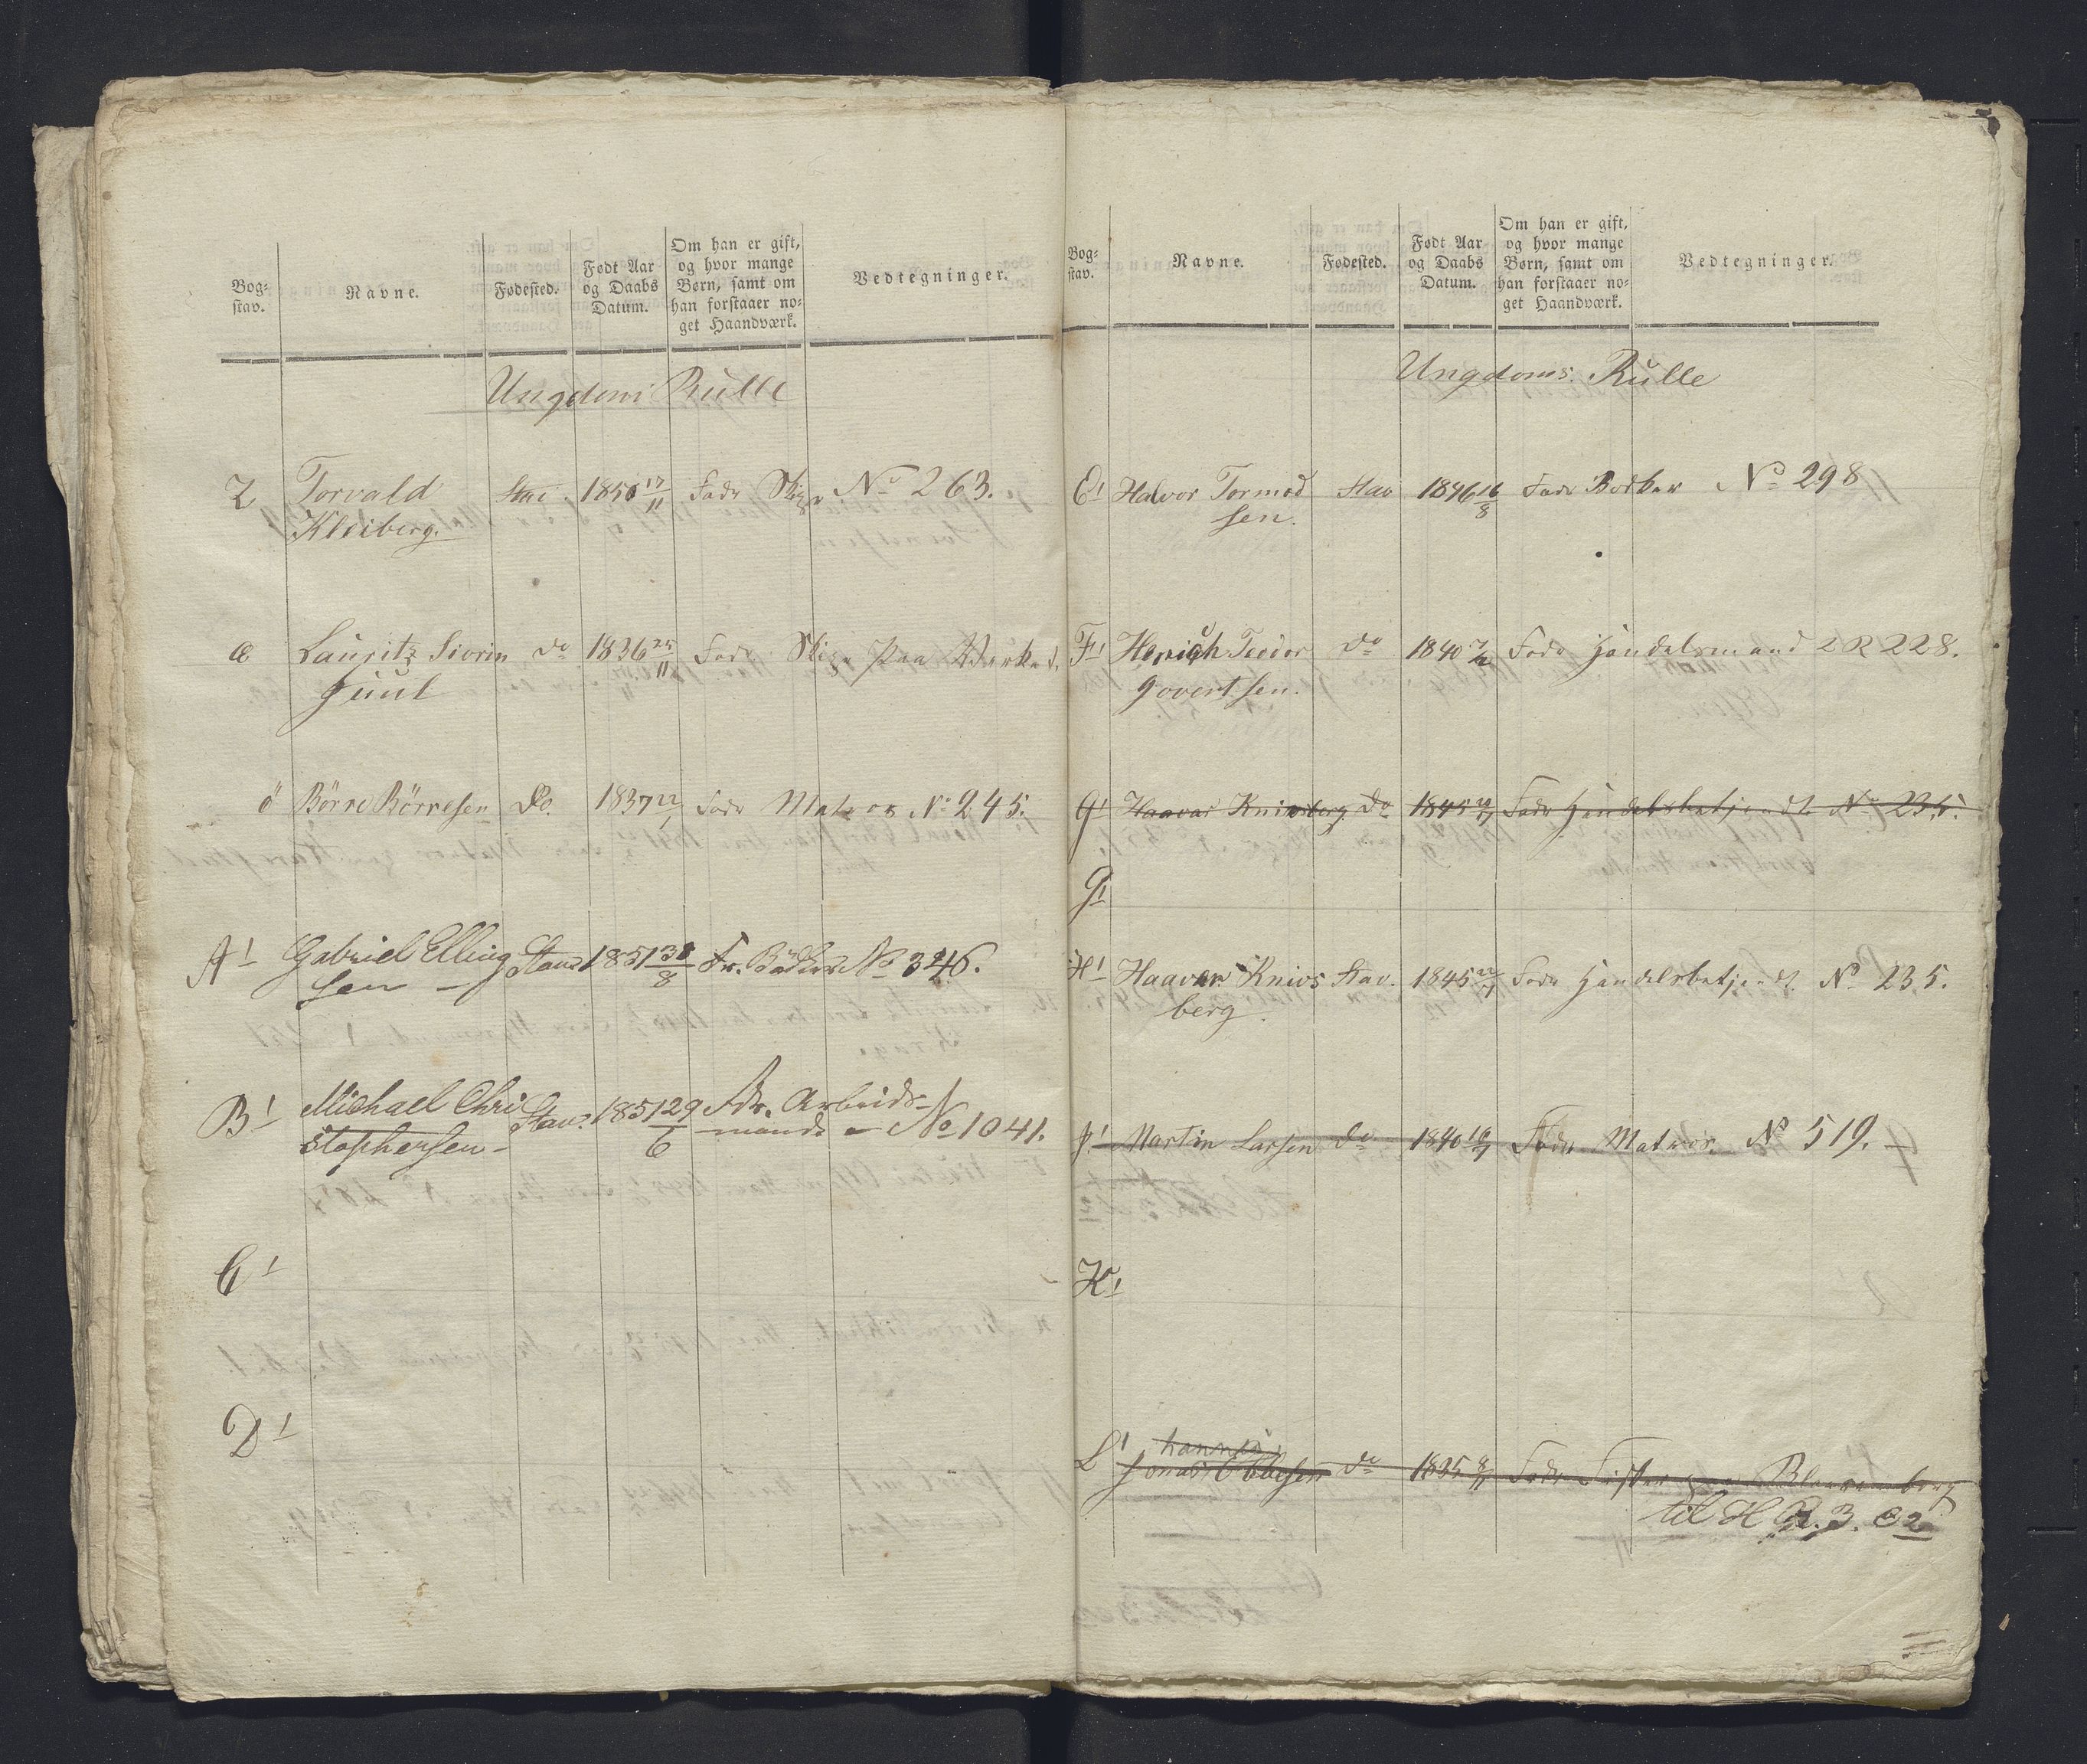 Bog-
stav.
Navne.
Fødested.
Født Aar
og Daabs
Datum.
Om han er gift,
og hvor mange
Børn, samt om
han forstaaer no-
get Haandværk.
Vedtegninger.
Ungdoms Rulle
Z Torvald Stav 1850 17/11 Fadr No 263.
Kleiberg.
æ Lauritz Sivrin do 1836 25/11 Fadr paa
Juul
ö Börre Börresen Do. 1837 22/1 Fadr Matros No 245.
A1 Gabriel Elling Stav. 1851 30/8 Fr. Bödker No 346.
sen
B1 Michael Chri Stav. 1851 29/6 Fdr. Arbeids-
stophersen - mand No 1041.
C1
D1
Bog-
stav.
Navne.
Fødested.
Født Aar
og Daabs
Datum.
Om han er gift,
og hvor mange
Børn, samt om
han forstaaer no-
get Haandværk.
Vedtegninger.
Ungdoms Rulle
E1 Halvor Tormod Stav 1846 16/8 Fadr Bödker No 298
sen.
F1 Henrich Teodor do 1840 Fadr Handelsmand 2 R 228.
Govertsen.
G1 Haavar Kniosberg do 1845 Fadr Handelsbetjendt No 235.
G1
H1 Haavar Knios Stav. 1845 22/1 Fadr Handelsbetjendt No 235.
berg
Martin Larsen do 1840 Fadr Matros. No 519.
K1
hannes
L1 Jonas do 1835 Fadr Fisker
til H R. 3. C 2